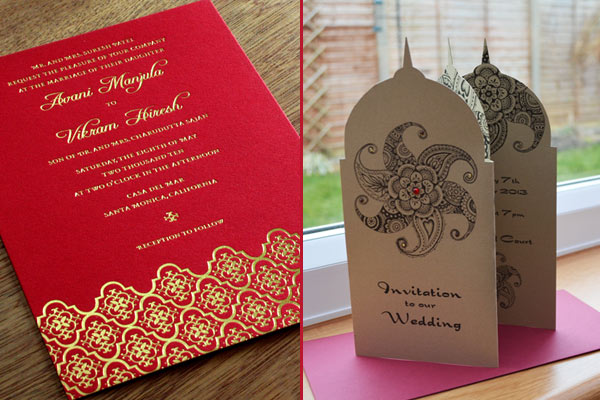 MR. AND MRS. SURESH PATEL
REQUEST THE PLEASURE OF YOUR COMPANY
AT THE MARRIAGE OF THEIR DAUGHTER
Avani Manjula
TO
Vikram Hiresh
SON OF DR. AND MRS. CHARUDUTTA SAJAN
SATURDAY, THE EIGHTH OF MAY
TWO THOUSAND TEN
AT TWO O'CLOCK IN THE AFTERNOON
CASA DEL MAR
SANTA MONICA, CALIFORNIA
RECEPTION TO FOLLOW
Invitation
to our
Wedding
7th
2013
7pm
Court